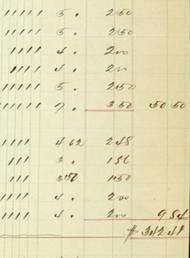 11111 5. 250
11111 5. 250
1111 4. 200
1111 4. 200
11111 5. 250
7. 350 5050
1111 4 62 248
111 3. 186
111 3 50 150
1111 4. 200
1111 4. 200 984
$ 342 48